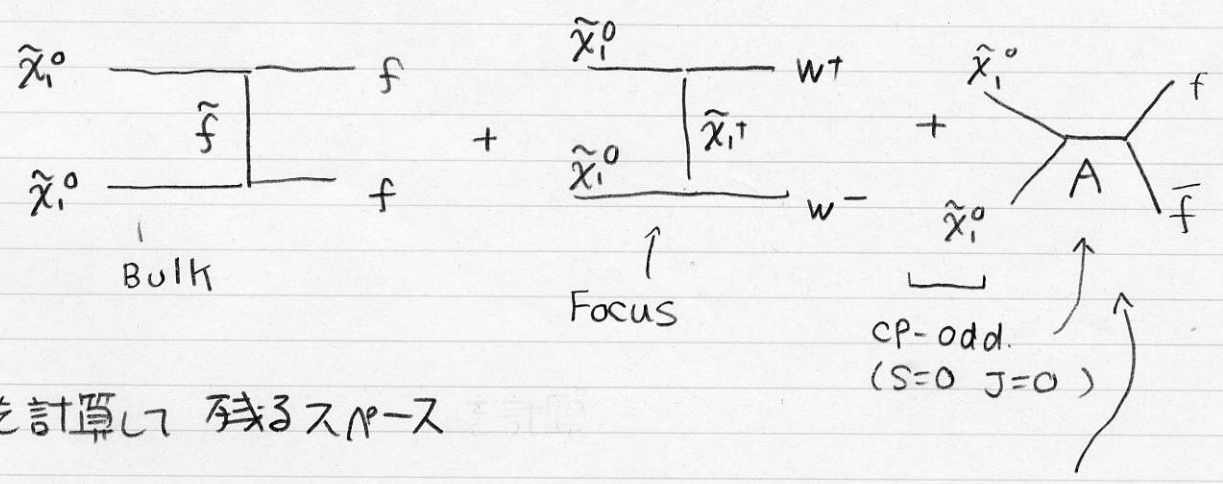 χ̃₁⁰ f
f̃
χ̃₁⁰ f
Bulk
+
χ̃₁⁰ W+
χ̃₁+
χ̃₁⁰ W−
Focus
+
χ̃₁⁰ f
A
χ̃₁⁰ f̅
CP-odd.
(S=0 J=0)
を計算して 残るスペース